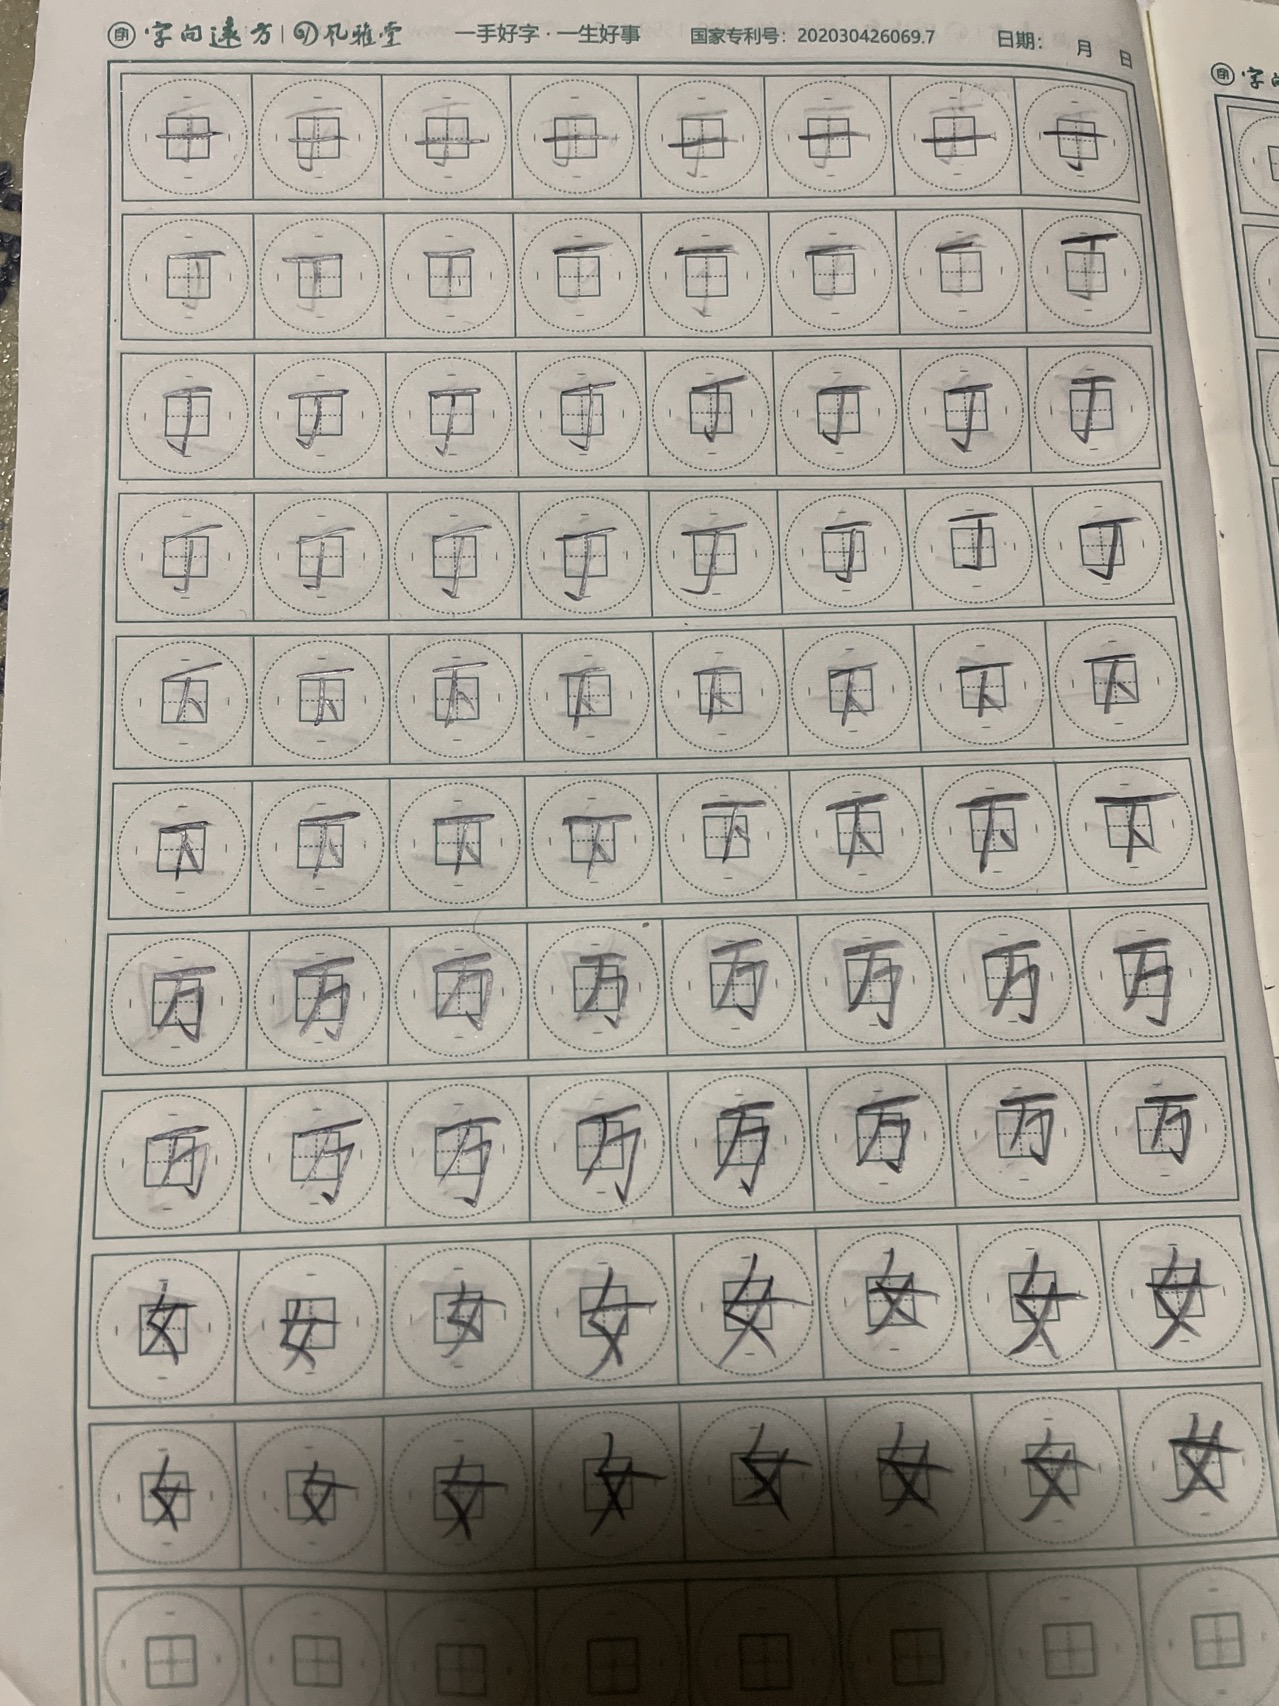 字向远方 | 风雅堂 一手好字 · 一生好事 国家专利号：202030426069.7 日期： 月 日
一 一 一 一 一 一 一 一
丁 丁 丁 一 一 一 一 丁
丁 丁 丁 丁 丁 丁 丁 丁
丁 丁 丁 丁 丁 丁 丁 丁
下 下 下 下 下 下 下 下
下 下 下 下 下 下 下 下
万 万 万 万 万 万 万 万
万 万 万 万 万 万 万 万
女 女 女 女 女 女 女 女
女 女 女 女 女 女 女 女